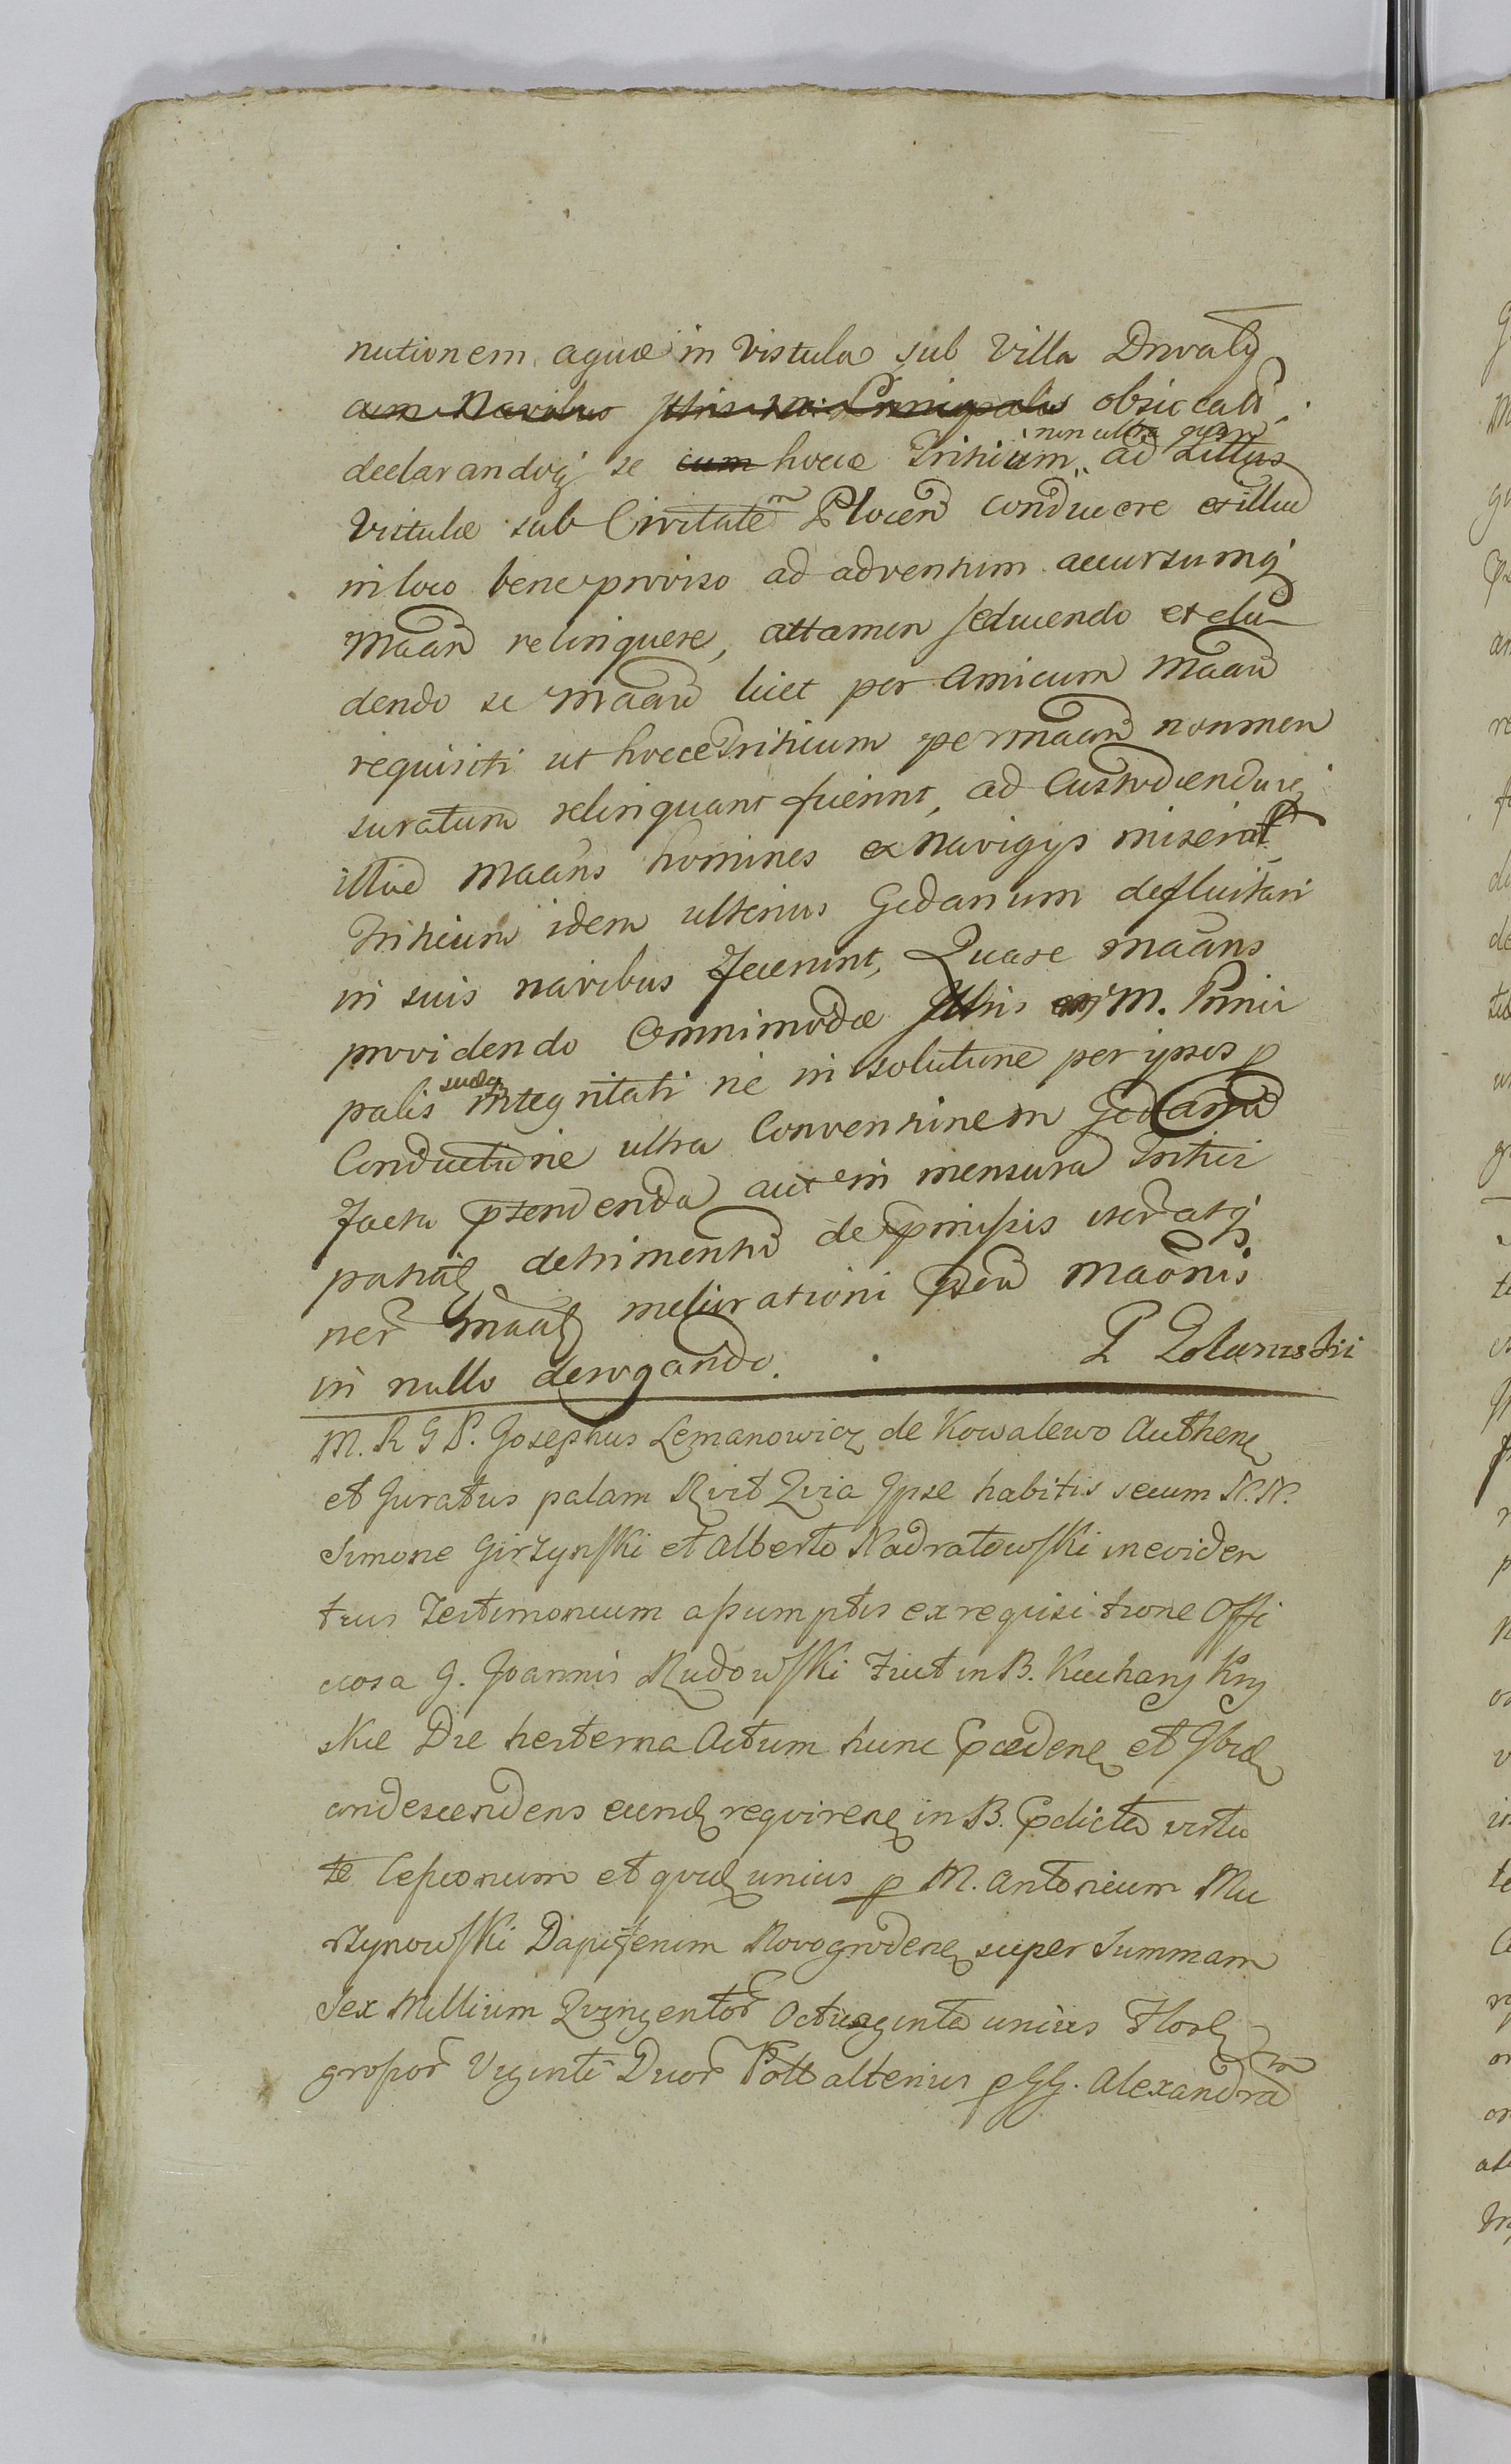 nutionem aquæ in Vistula sub Villa Drwały
cum Navibus Principalis obsiccati
declarandoq se cum hocce Triticum non ultra quam ad Littus
Vistulæ sub Civitatem Plocen conducere et illud
in loco bene proviso ad adventum accursumq
Maan relinquere, attamen seducendo et elu
dendo se Maan licet per Amicum Maan
requisiti ut hocce Triticum per maan non men
suratum relinquant fuerint, ad Custodiendumq
illud Maans homines ex Navigys miserat
Triticum idem ulterius Gedanum defluitari
in suis navibus fecerunt, Quare Maans
providendo Omnimodæ Juris M. Princi
palis sui integritati ne in solutione per ipsos p
Conductione ultra Conventionem Gedanum
facta ptendenda aut in mensura Tritici
detrimento de pmissis
meliorationi Maonis
in nullo derogando. P Zolanuski
M. R G P. Josephus Lemanowicz de Kowalewo Authen
et Juratus palam Rvit Qvia Ipse habitis secum N.N.
Simone Girzynski et Alberto Nadratowski in eviden
tius Testimonium assumptis ex reqvisitione Offi
ciosa G. Joannis Rudowski fuit in B. Kuchary Kry
skie Die hesterna Actum hunc Pcæden et Ibid
condescendens eund reqviren in B. Pdicta virtu
te Cessionum et qvid unius p M. Antonium Mu
rzynowski Dapiferum Novogroden super Summam
Sex Millium Qvingentor Octuaginta unius Flor
grossor Viginti Duor Poll alterius p GG. Alexandram